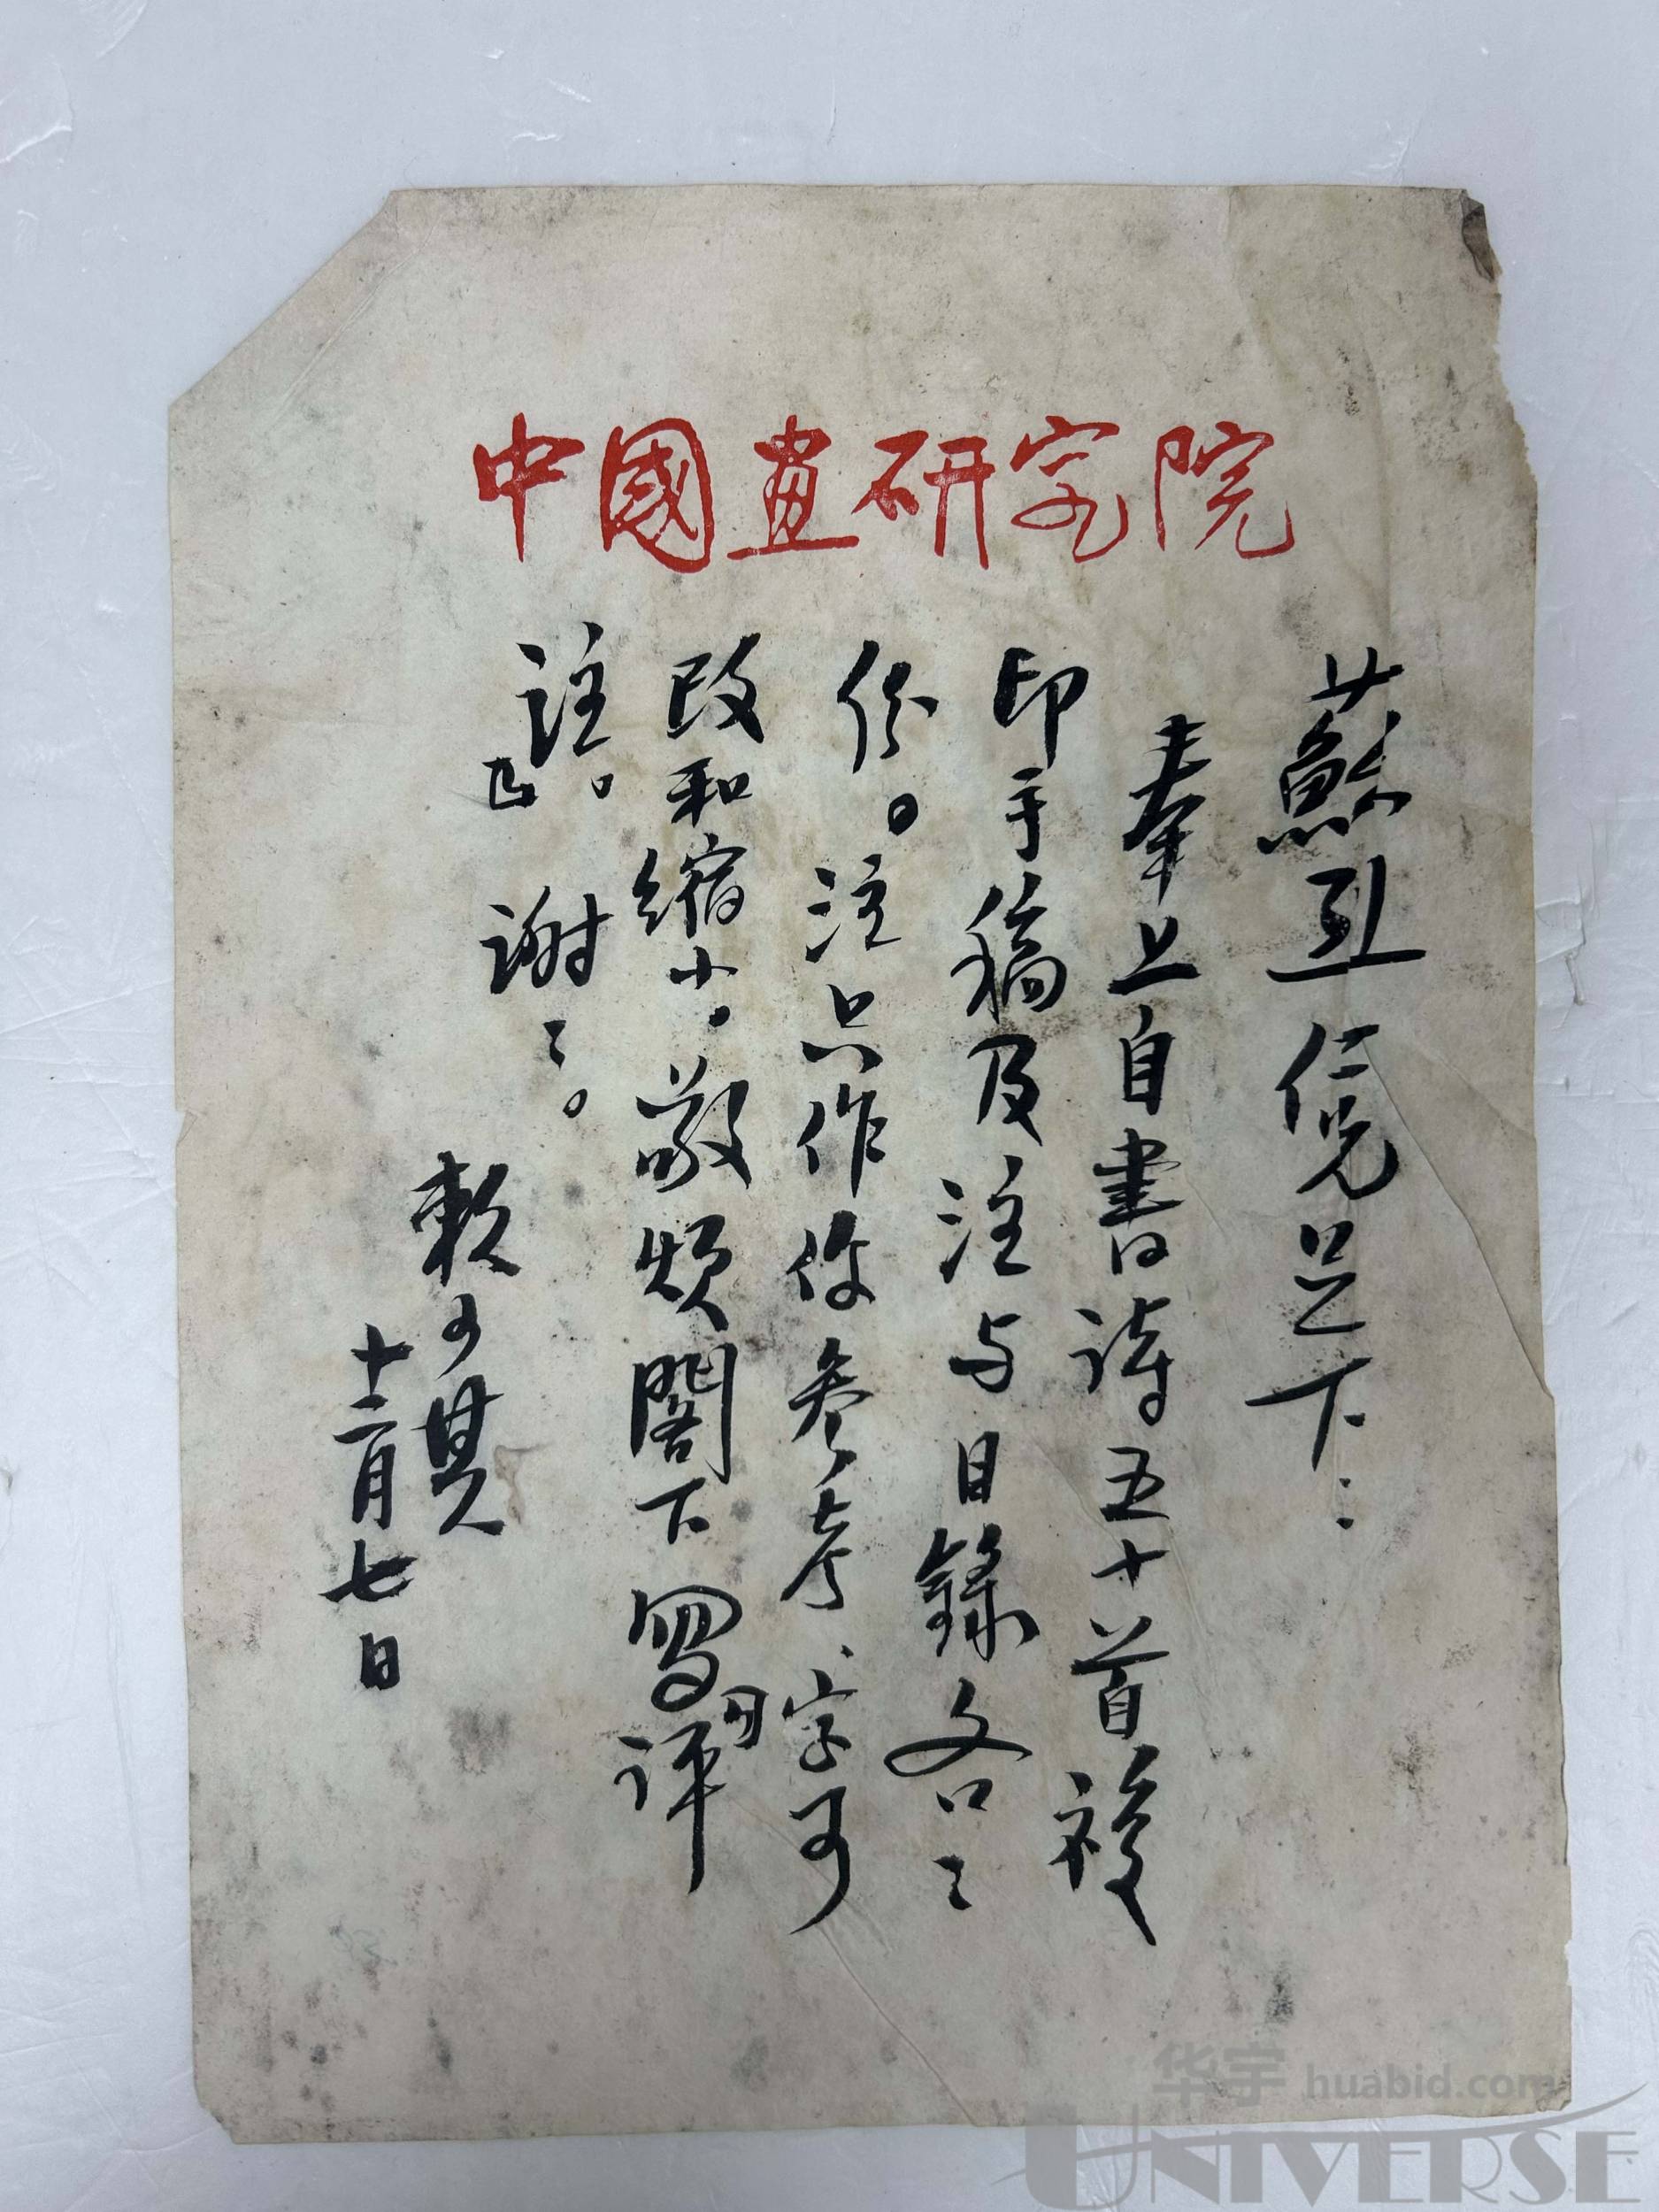 中國畫研究院
蘇 仁兄足下：
奉上自書詩五十首複
印手稿及注与目錄各二
份。注只作你參考、字可
改和縮小。敬煩閣下寫評
註。謝〻。
賴少其
十二月七日
华宇 huabid.com
UNIVERSE